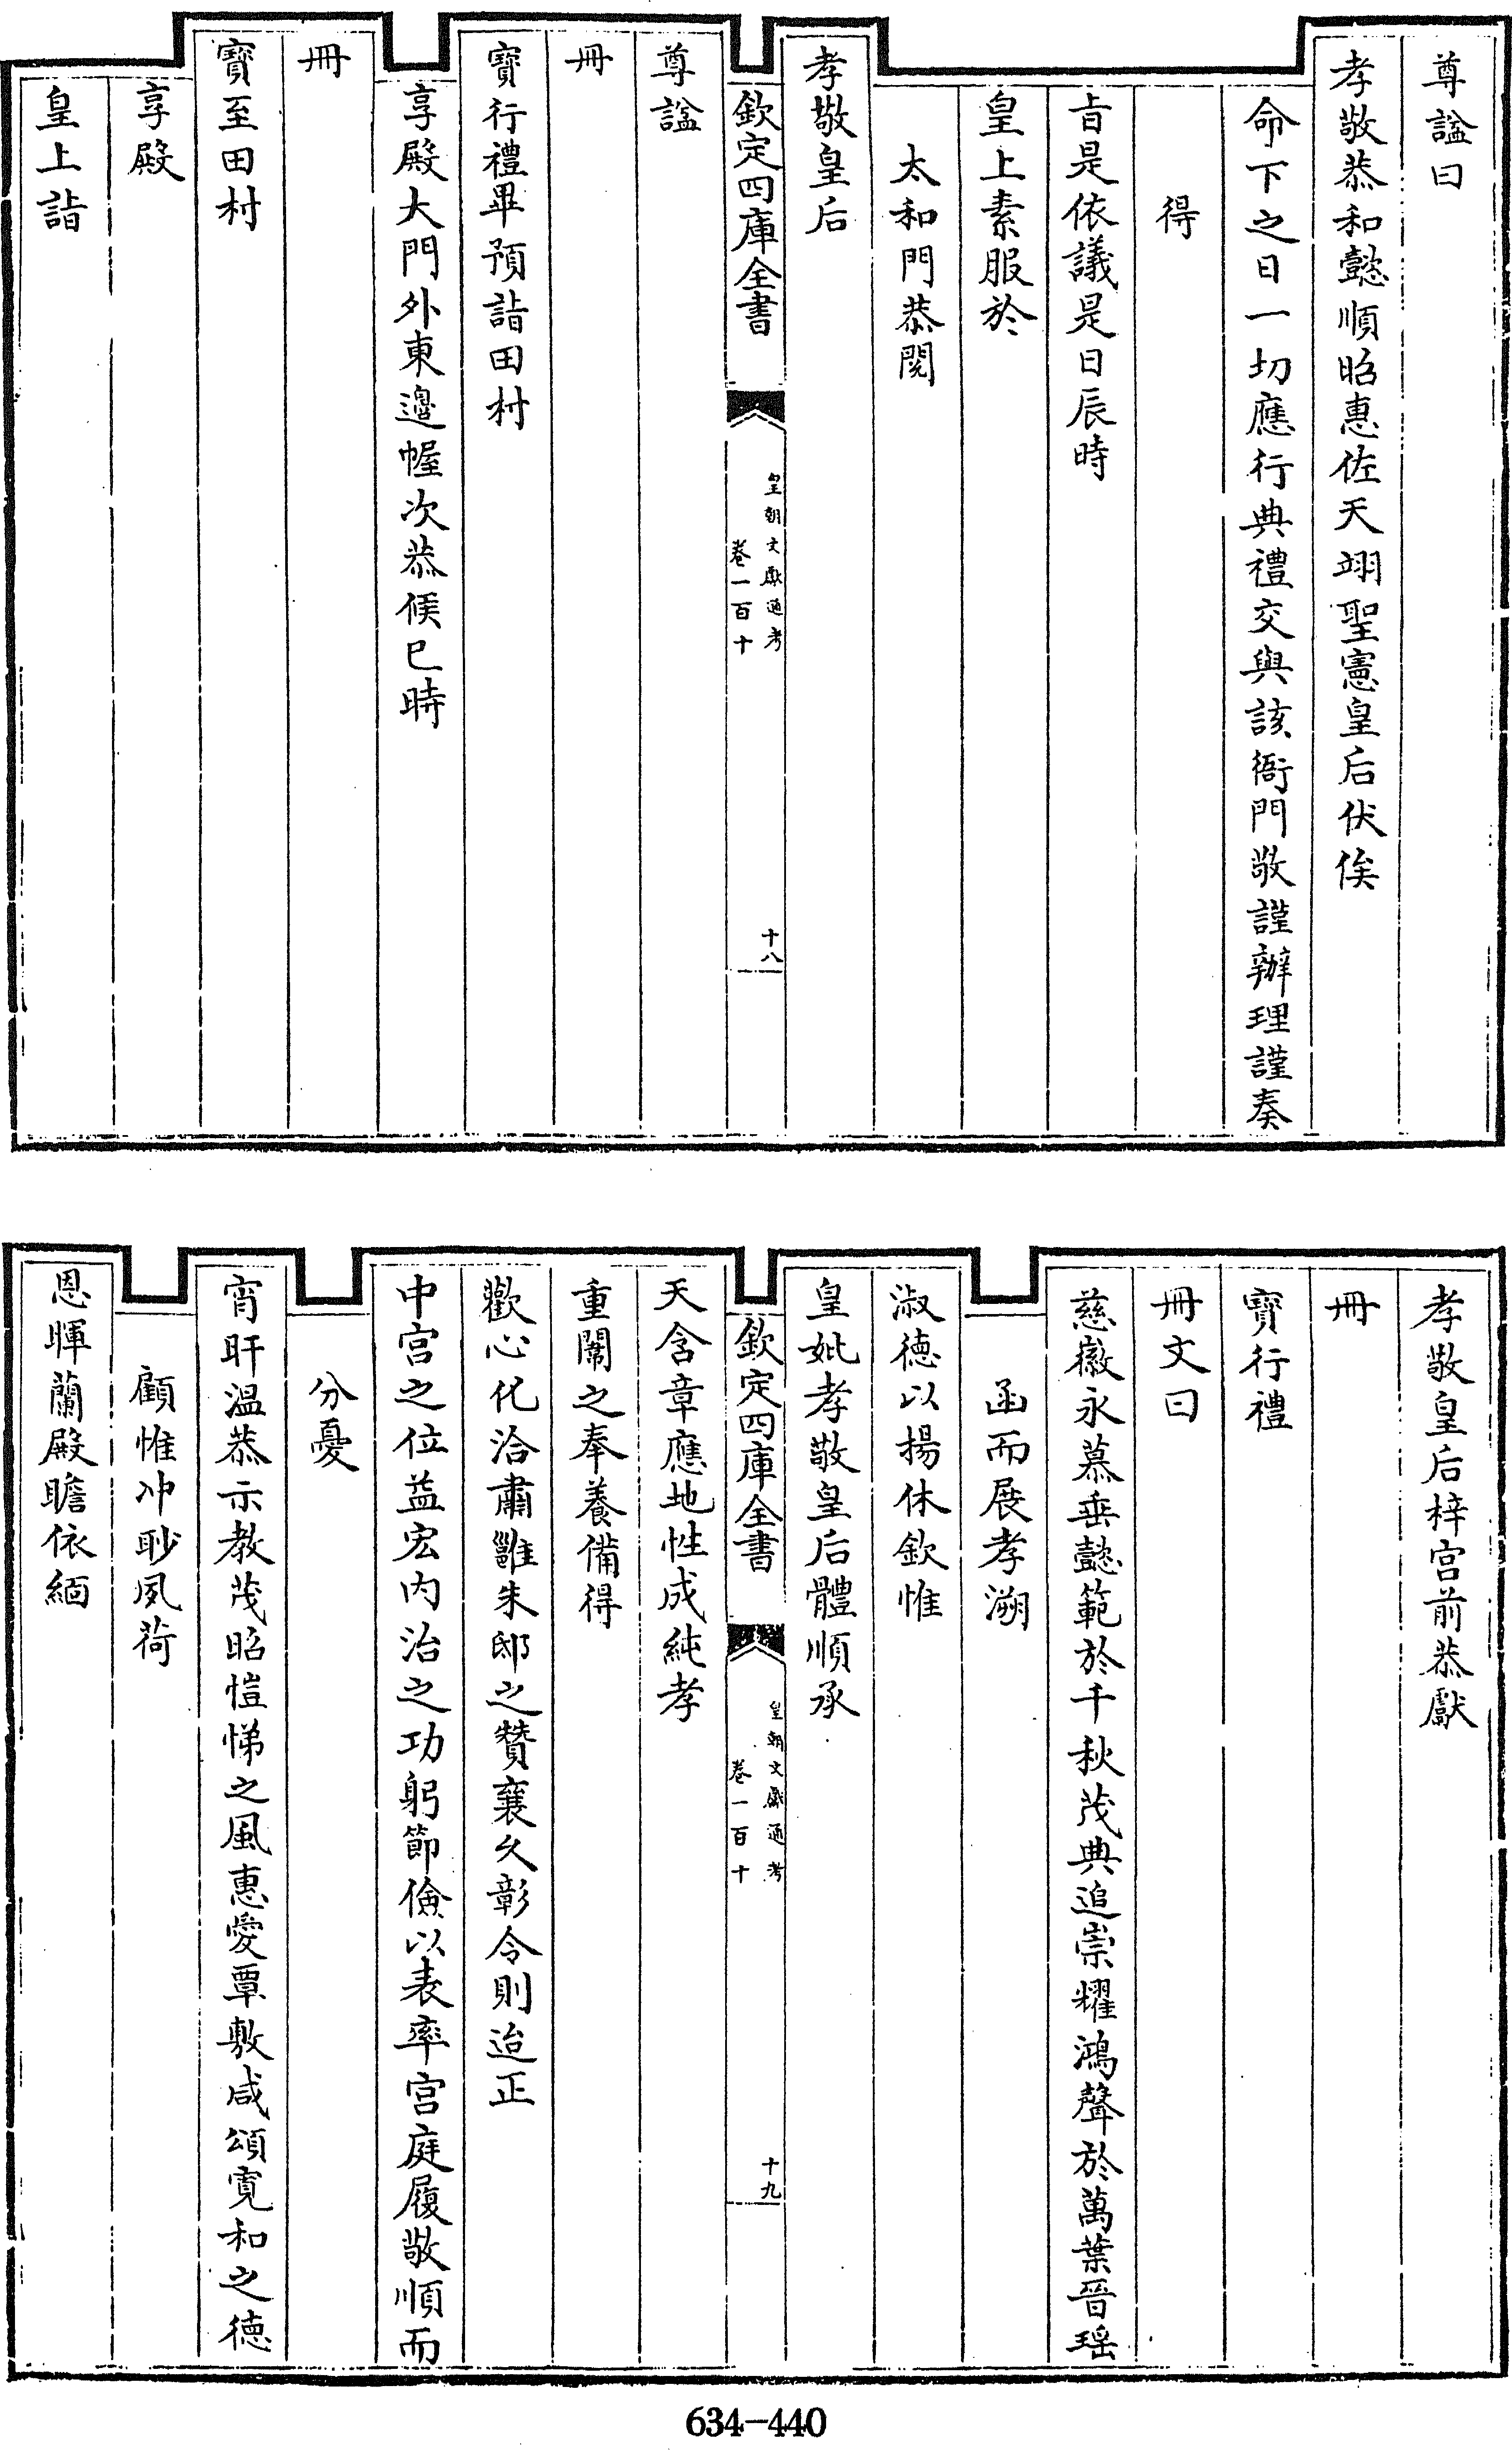 尊諡曰
孝敬恭和懿順昭惠佐天翊聖憲皇后伏俟
命下之日一切應行典禮交與該衙門敬謹辦理謹奏
得
旨是依議是日辰時
皇上素服於
太和門恭閱
孝敬皇后
欽定四庫全書
皇朝文獻通考
卷一百十
十八
尊諡
冊
寶行禮畢預詣田村
享殿大門外東邊幄次恭候巳時
冊
寶至田村
享殿
皇上詣
孝敬皇后梓宮前恭獻
冊
寶行禮
冊文曰
慈徽永慕垂懿範於千秋茂典追崇耀鴻聲於萬葉晉瑶
函而展孝溯
淑德以揚休欽惟
皇妣孝敬皇后體順承
欽定四庫全書
皇朝文獻通考
卷一百十
十九
天含章應地性成純孝
重闈之奉養備得
歡心化洽肅雝朱邸之贊襄久彰令則迨正
中宮之位益宏内治之功躬節儉以表率宮庭履敬順而
分憂
宵旰溫恭示教茂昭愷悌之風惠愛覃敷咸頌寬和之德
顧惟冲眇夙荷
恩暉蘭殿瞻依緬
634-440